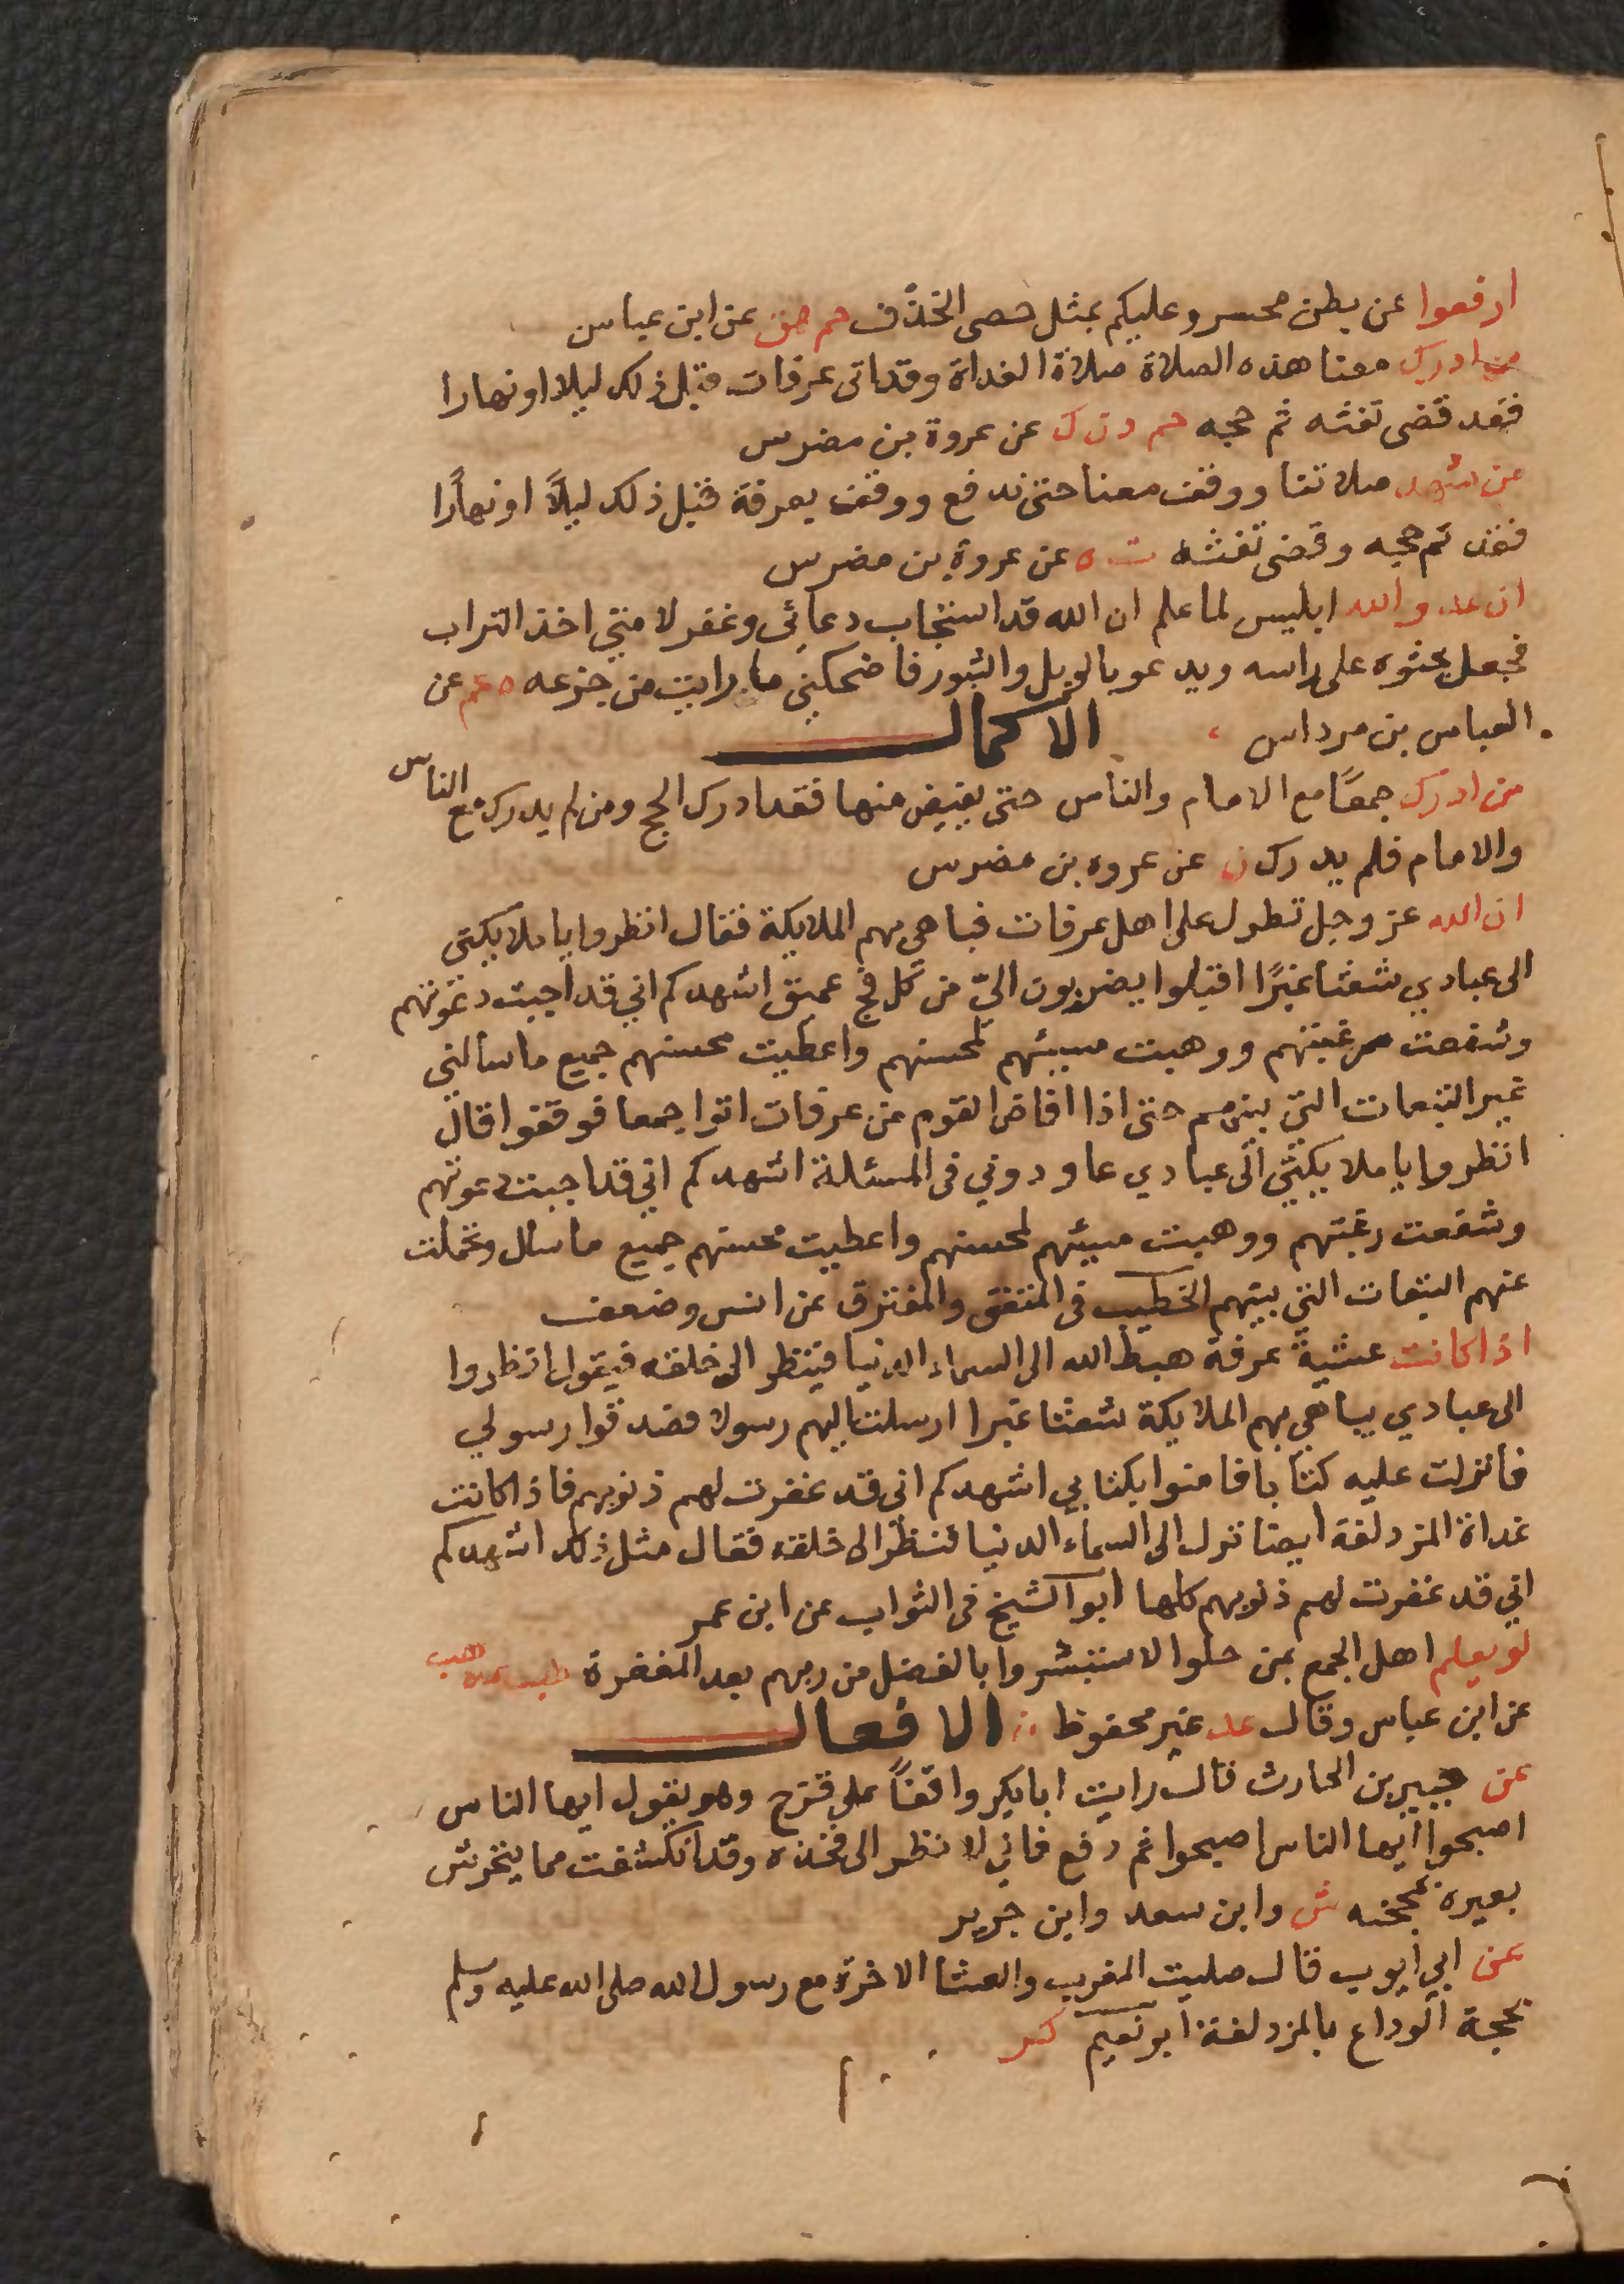 ارفعوا عن بطن محسر وعليكم بمثل حصى الخذف حم هق عن ابن عباس
من ادرك معنا هذه الصلاة صلاة الغداة وقد اتى عرفات قبل ذلك ليلا او نهارا
فقد قضى تفثه ثم حجه حم د ن ك عن عروة بن مضرس
من شهد صلاتنا ووقف معنا حتى ندفع ووقف بعرفة قبل ذلك ليلاً او نهاًرا
فقد تم حجه وقضى تفثه ت ه عن عروة بن مضرس
ان عدو الله ابليس لما علم ان الله قد استجاب دعائى وغفر لامتي اخذ التراب
فجعل يحثوه على راسه ويدعو بالويل والثبور فاضحكني ما رايت من جزعه ه عم عن
العباس بن مرداس الاكمال
من ادرك جمعًا مع الامام والناس حتى يفيض منها فقد ادرك الحج ومن لم يدرك مع الناس
والامام فلم يدرك ن عن عروه بن مضرس
ان الله عز وجل تطول على اهل عرفات فباهى بهم الملايكة فقال انظروا يا ملايكتى
الى عبادي شعثا غبرًا اقبلوا يضربون اليّ من كل فج عميق اشهدكم اني قد اجبت دعوتهم
وشفعت رغبتهم ووهبت مسيئهم لمحسنهم واعطيت محسنهم جميع ما سالني
غير التبعات التي بينهم حتى اذا افاض القوم من عرفات اتوا جمعا فوقفوا قال
انظروا يا ملايكتي الى عبادي عاودوني فى المسئلة اشهدكم اني قد اجبت دعوتهم
وشفعت رغبتهم ووهبت مسيئهم لمحسنهم واعطيت محسنهم جميع ما سال وتحملت
عنهم التبعات التي بينهم الخطيب فى المتفق والمفترق عن انس وضعف
اذا كانت عشية عرفة هبط الله الى السماء الدنيا فينظر الى خلقه فيقول انظروا
الى عبادي يباهى بهم الملايكة شعثا غبرا ارسلت اليهم رسولا فصدقوا رسولي
فانزلت عليه كتابا فامنوا بكتابي اشهدكم انى قد غفرت لهم ذنوبهم فاذا كانت
غداة المزدلفة ايضا نزل الى السماء الدنيا فنظر الى خلقه فقال مثل ذلك اشهدكم
اني قد غفرت لهم ذنوبهم كلها ابو الشيخ فى الثواب عن ابن عمر
لو يعلم اهل الجمع بمن حلوا لاستبشروا بالفضل من ربهم بعد المغفرة طب عد هب
عن ابن عباس وقال عد غير محفوظ الافعال
عن جبير بن الحارث قال رايت ابا بكر واقفاً على قزح وهو يقول ايها الناس
اصبحوا ايها الناس اصبحوا ثم دفع فاني لانظر الى فخذه وقد انكشفت مما يخرش
بعيره بمحجنه ش وابن سعد وابن جرير
عن ابي ايوب قال صليت المغرب والعشا الاخرة مع رسول الله صلى الله عليه وسلم
بحجة الوداع بالمزدلفة ابو نعيم كر